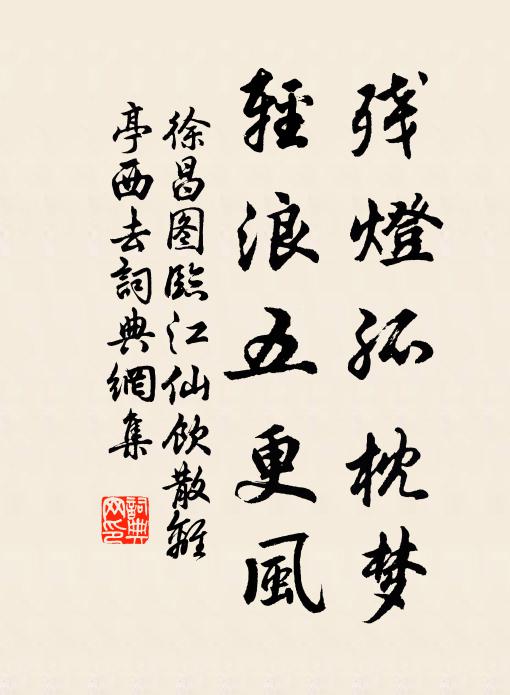 残燈孤枕梦
輕浪五更風
徐昌图臨江仙飲散離
亭西去詞典網集
詞典网印